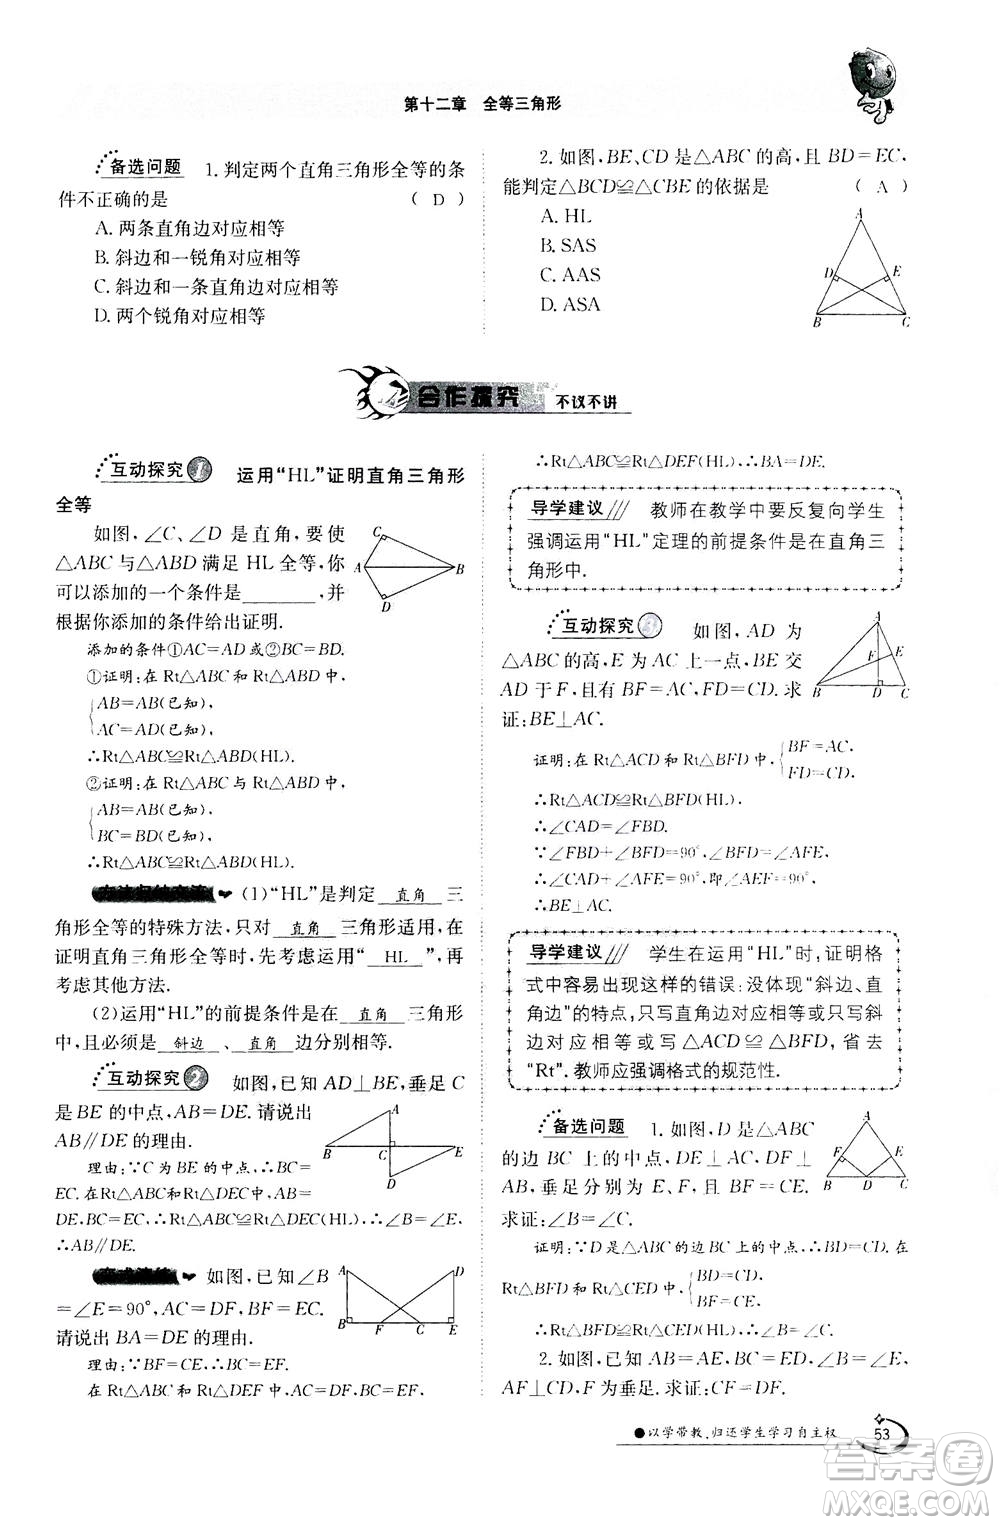 第十二章　全等三角形
备选问题　1. 判定两个直角三角形全等的条
件不正确的是　（ D ）
A. 两条直角边对应相等
B. 斜边和一锐角对应相等
C. 斜边和一条直角边对应相等
D. 两个锐角对应相等
2. 如图, BE、CD 是△ABC 的高, 且 BD=EC,
能判定△BCD≌△CBE 的依据是　（ A ）
A. HL
B. SAS
C. AAS
D. ASA
A
D
E
B
C
合作探究　不议不讲
互动探究 1　运用“HL”证明直角三角形
全等
如图, ∠C、∠D 是直角, 要使
△ABC 与△ABD 满足 HL 全等, 你
可以添加的一个条件是______, 并
根据你添加的条件给出证明.
C
A
B
D
添加的条件①AC=AD 或②BC=BD.
①证明: 在 Rt△ABC 和 Rt△ABD 中,
AB=AB(已知),
AC=AD(已知),
∴Rt△ABC≌Rt△ABD(HL)
②证明: 在 Rt△ABC 与 Rt△ABD 中,
AB=AB(已知),
BC=BD(已知),
∴Rt△ABC≌Rt△ABD(HL).
(1)“HL”是判定 直角 三
角形全等的特殊方法, 只对 直角 三角形适用, 在
证明直角三角形全等时, 先考虑运用“ HL ”, 再
考虑其他方法.
(2)运用“HL”的前提条件是在 直角 三角形
中, 且必须是 斜边 、 直角 边分别相等.
互动探究 2　如图, 已知 AD⊥BE, 垂足 C
是 BE 的中点, AB=DE. 请说出
AB∥DE 的理由.
A
B
C
E
D
理由: ∵C 为 BE 的中点, ∴BC=
EC. 在 Rt△ABC 和 Rt△DEC 中, AB=
DE, BC=EC, ∴Rt△ABC≌Rt△DEC(HL), ∴∠B=∠E,
∴AB∥DE.
如图, 已知∠B
=∠E=90°, AC=DF, BF=EC.
请说出 BA=DE 的理由.
A
D
B
F
C
E
理由: ∵BF=CE, ∴BC=EF.
在 Rt△ABC 和 Rt△DEF 中, AC=DF, BC=EF,
∴Rt△ABC≌Rt△DEF(HL), ∴BA=DE.
导学建议　教师在教学中要反复向学生
强调运用“HL”定理的前提条件是在直角三
角形中.
互动探究 3　如图, AD 为
△ABC 的高, E 为 AC 上一点, BE 交
AD 于 F, 且有 BF=AC, FD=CD. 求
证: BE⊥AC.
A
F
E
B
D
C
证明: 在 Rt△ACD 和 Rt△BFD 中, BF=AC,
FD=CD.
∴Rt△ACD≌Rt△BFD(HL),
∴∠CAD=∠FBD.
∵∠FBD+∠BFD=90°, ∠BFD=∠AFE,
∴∠CAD+∠AFE=90°, 即∠AEF=90°,
∴BE⊥AC.
导学建议　学生在运用“HL”时, 证明格
式中容易出现这样的错误: 没体现“斜边、直
角边”的特点, 只写直角边对应相等或只写斜
边对应相等或写△ACD≌△BFD, 省去
“Rt”. 教师应强调格式的规范性.
备选问题　1. 如图, D 是△ABC
的边 BC 上的中点, DE⊥AC, DF⊥
AB, 垂足分别为 E、F, 且 BF=CE.
求证: ∠B=∠C.
A
F
E
B
D
C
证明: ∵D 是△ABC 的边 BC 上的中点, ∴BD=CD. 在
Rt△BFD 和 Rt△CED 中, BD=CD,
BF=CE,
∴Rt△BFD≌Rt△CED(HL), ∴∠B=∠C.
2. 如图, 已知 AB=AE, BC=ED, ∠B=∠E,
AF⊥CD, F 为垂足. 求证: CF=DF.
●以学带教、归还学生学习自主权
53
答案圈
MXQE.COM